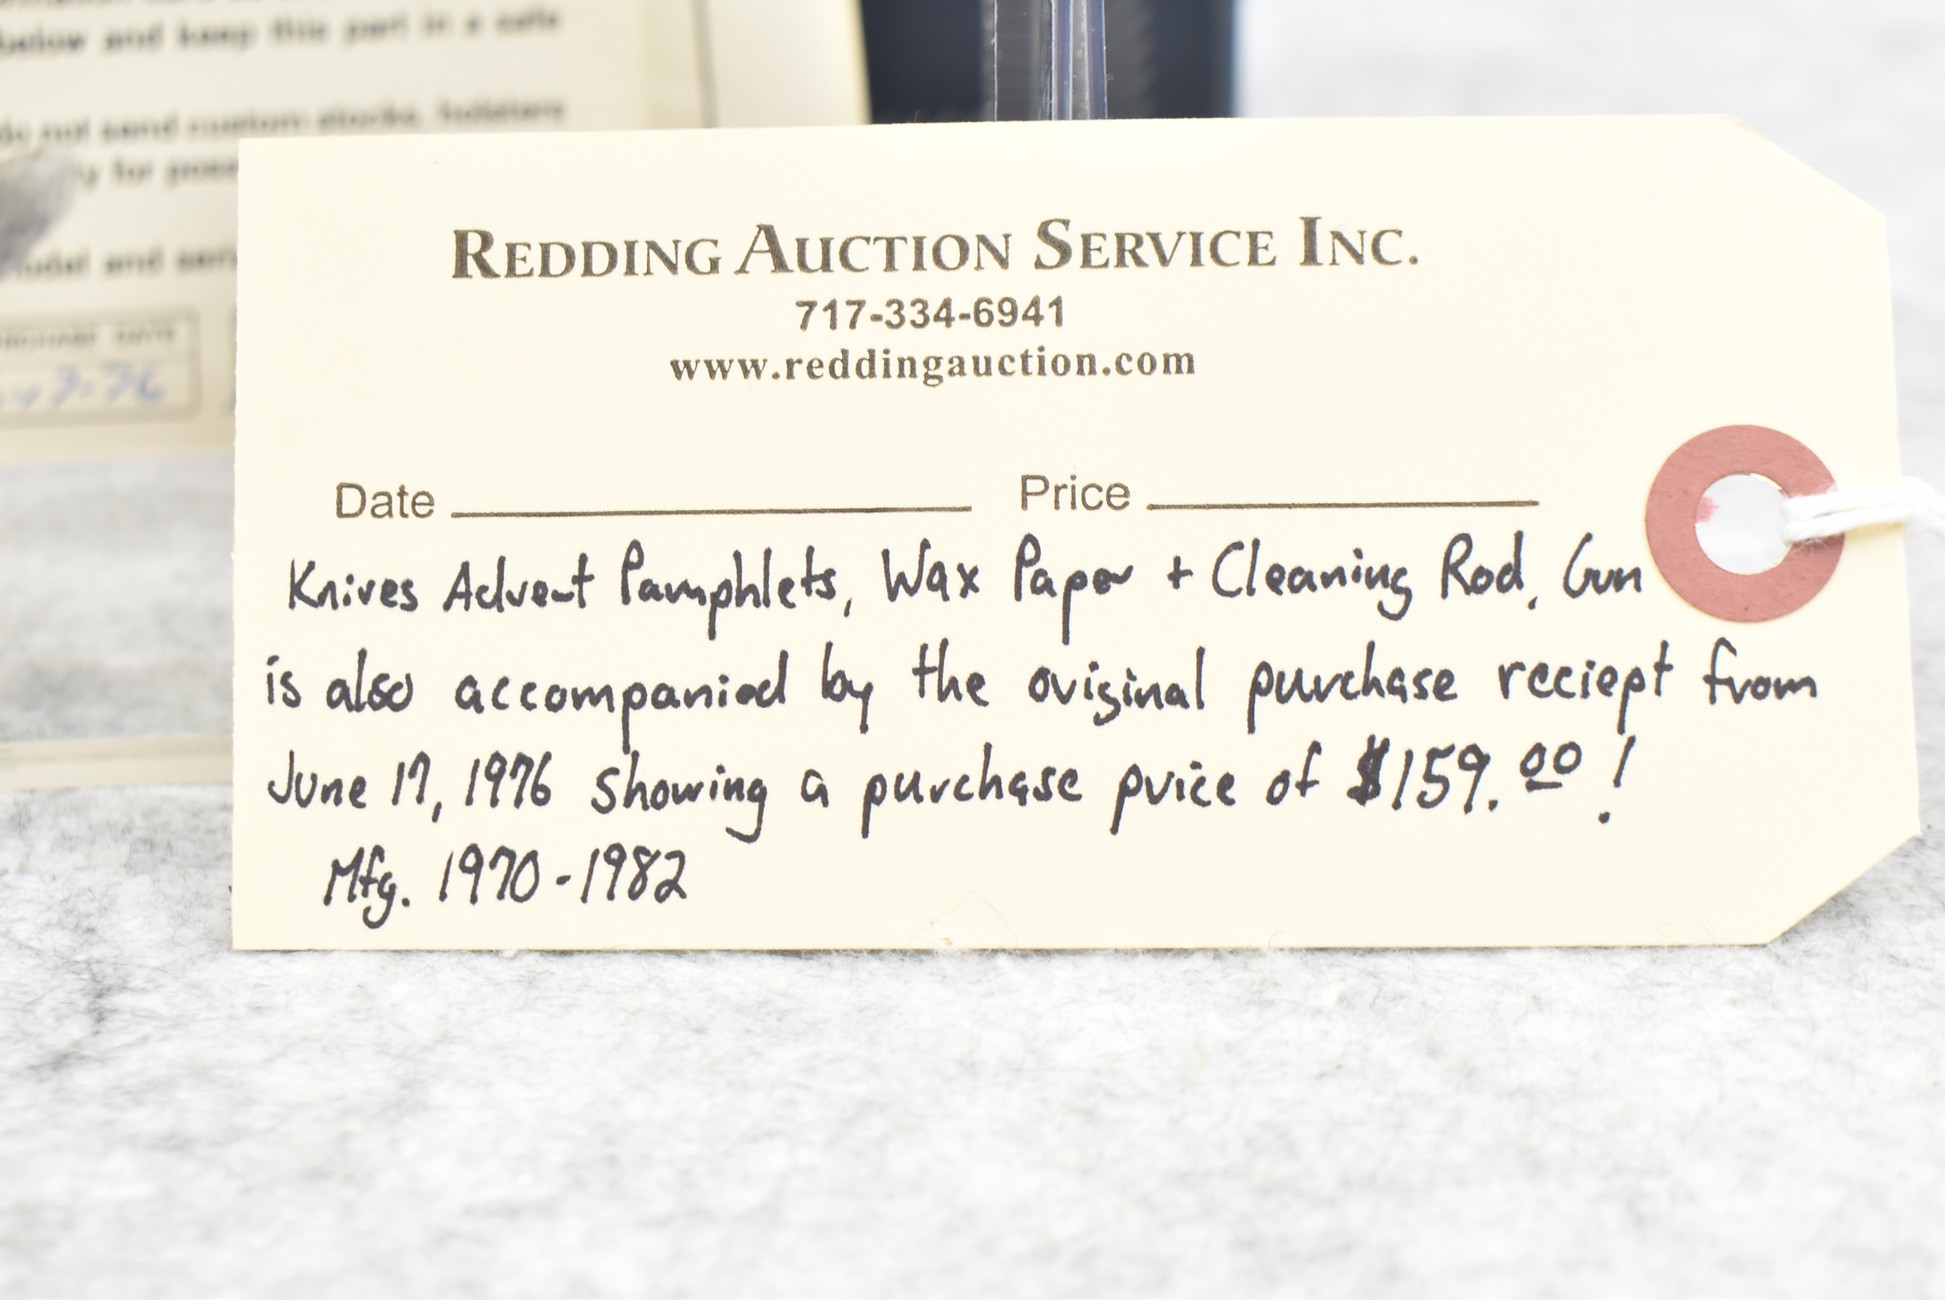 below and keep this part in a safe
do not send custom stocks, holsters
ly for poss
model and seri
PURCHASE DATE
REDDING AUCTION SERVICE INC.
717-334-6941
www.reddingauction.com
Date Price
Knives Advent Pamphlets, Wax Paper + Cleaning Rod, Gun
is also accompanied by the original purchase reciept from
June 17, 1976 showing a purchase price of $159.00!
Mfg. 1970-1982